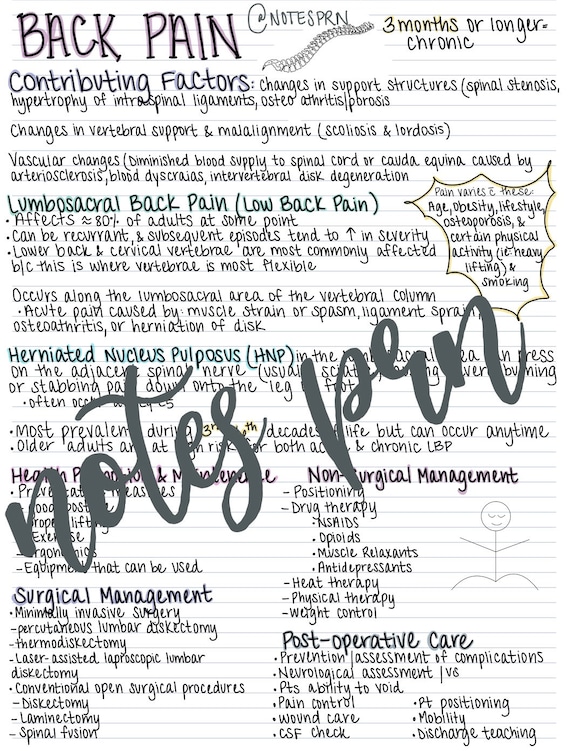 BACK PAIN
@NOTESPRN
3 months or longer=
chronic
Contributing Factors: changes in support structures (spinal stenosis,
hypertrophy of intraspinal ligaments, osteo athritis/porosis
Changes in vertebral support & malalignment (scoliosis & lordosis)
Vascular changes (Diminished blood supply to spinal cord or cauda equina caused by
arteriosclerosis, blood dyscraias, intervertebral disk degeneration
Lumbosacral Back Pain (Low Back Pain)
• Affects ≈ 80% of adults at some point
• Can be recurrant, & subsequent episodes tend to ↑ in severity
• Lower back & cervical vertebrae are most commonly affected
b/c this is where vertebrae is most flexible
Pain varies c̄ these:
Age, obesity, lifestyle,
osteporosis, &
certain physical
activity (ie heavy
lifting) &
smoking
Occurs along the lumbosacral area of the vertebral column
• Acute pain caused by: muscle strain or spasm, ligament sprain,
osteoathritis, or herniation of disk
Herniated Nucleus Pulposus (HNP) in the area can press
on the adjacent spinal nerve (usually burning
or stabbing pain down onto the leg foot
• often
• Most prevalent during 3rd decades of life but can occur anytime
• Older adults are at risk for both & chronic LBP
Health & Maintenence
• measures
- Good posture
- Proper lifting
- Exercise
- Ergonomics
- Equipment that can be used
Non-Surgical Management
- Positioning
- Drug therapy
• NSAIDs
• Opioids
• Muscle Relaxants
• Antidepressants
- Heat therapy
- Physical therapy
- Weight control
Surgical Management
• Minimally invasive surgery
- percutaneous lumbar diskectomy
- thermodiskectomy
- Laser-assisted laproscopic lumbar
diskectomy
• Conventional open surgical procedures
- Diskectomy
- Laminectomy
- Spinal fusion
Post-operative Care
• Prevention/assessment of complications
• Neurological assessment/VS
• Pts ability to void
• Pain control
• Wound care
• CSF check
• Pt positioning
• Mobility
• Discharge teaching
notes prn